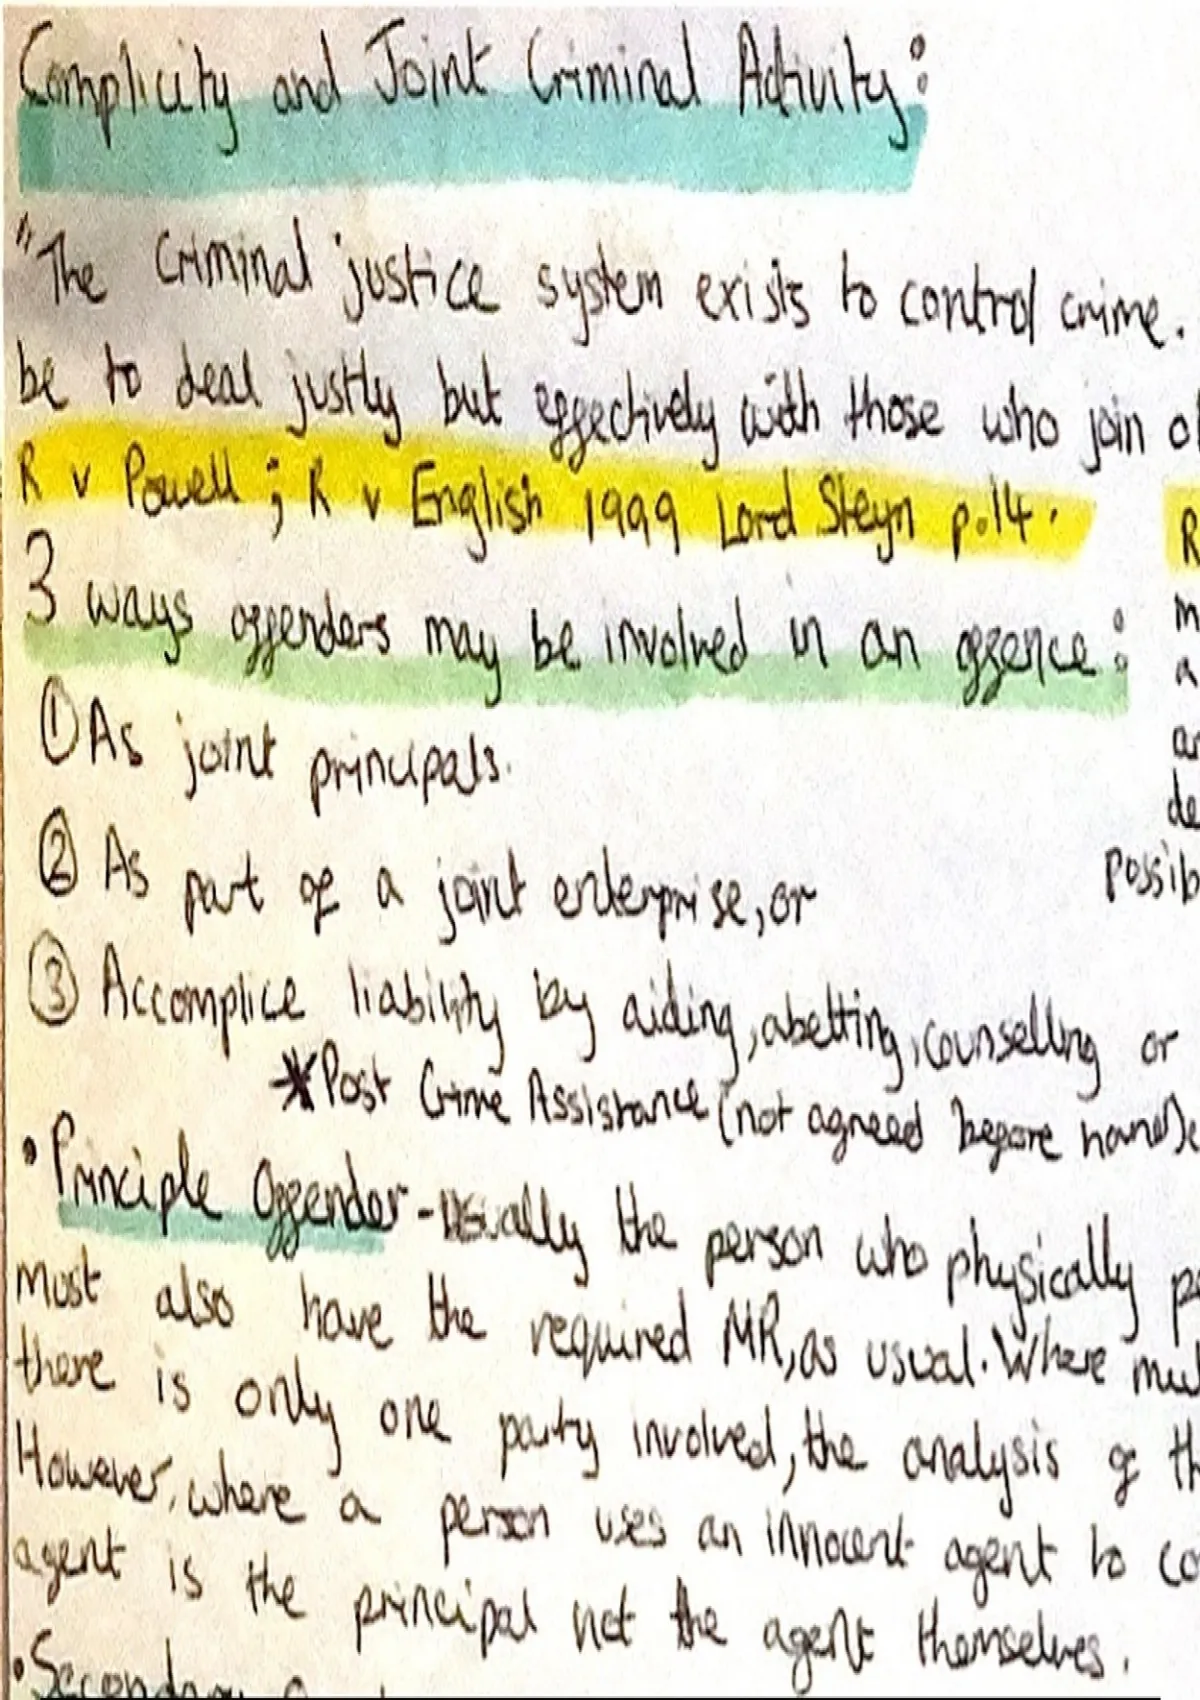 Complicity and Joint Criminal Activity:
"The Criminal justice system exists to control crime.
be to deal justly but effectively with those who join
R v Powell ; R v English 1999 Lord Steyn p.14.
3 ways offenders may be involved in an offence:
① As joint principals.
② As part of a joint enterprise, or
③ Accomplice liability by aiding, abetting, counselling or
*Post Crime Assistance (not agreed before hand)
• Principle Offender - Usually the person who physically
Must also have the required MR, as usual. Where
there is only one party involved, the analysis of
However, where a person uses an innocent agent to
agent is the principal not the agent themselves.
• Secondary
R
m
a
de
Possib